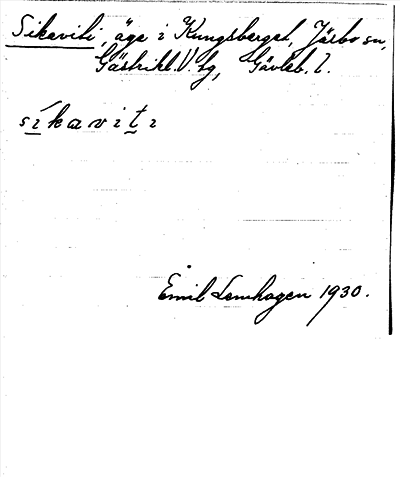 Sikaviti, äga i Kungsberget, Järbo sn,
Gästrikl. V. tg, Gävleb. l.
síkaviti
Emil Lemhagen 1930.